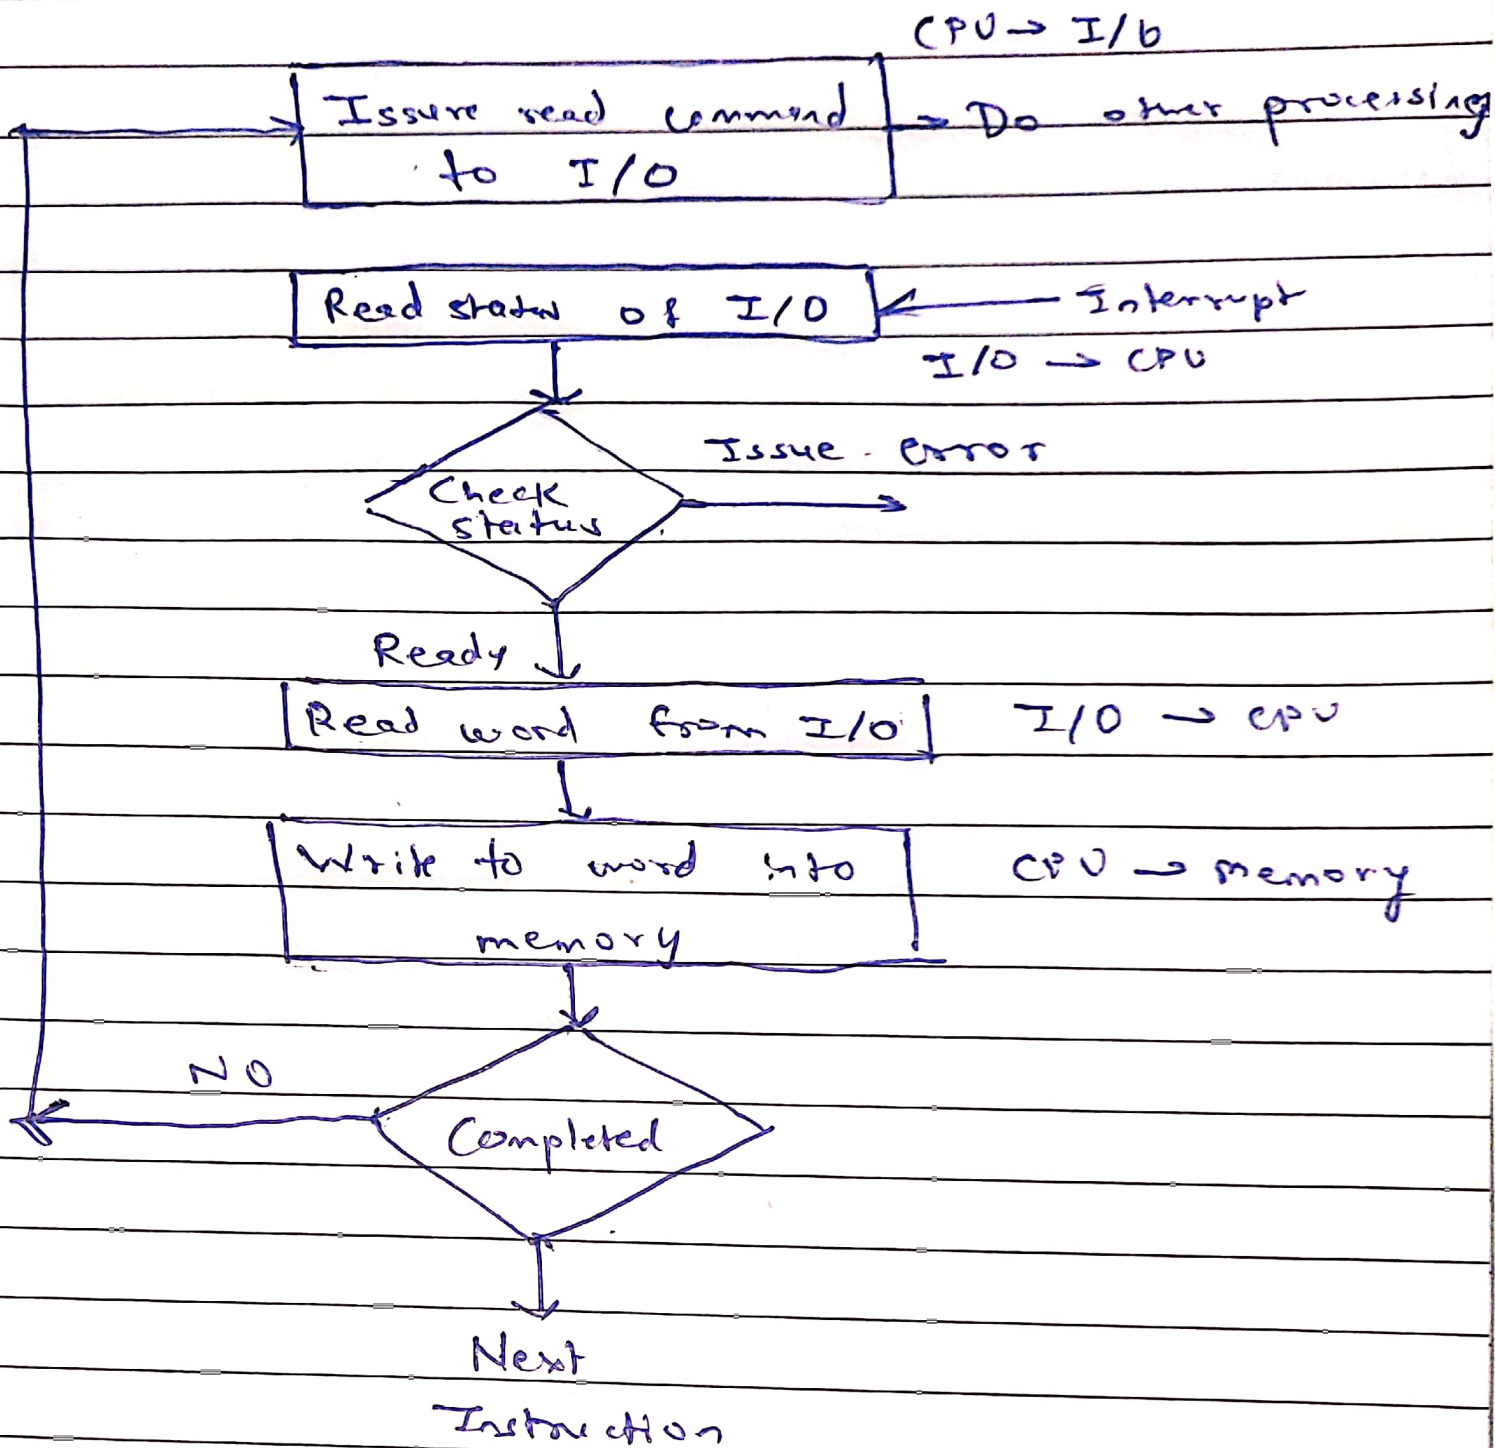 CPU → I/O
Issure read command → Do other processing
to I/O
Read status of I/O ← Interrupt
I/O → CPU
Issue error
Check
status
Ready
Read word from I/O I/O → CPU
Write to word into CPU → memory
memory
NO
Completed
Next
Instruction